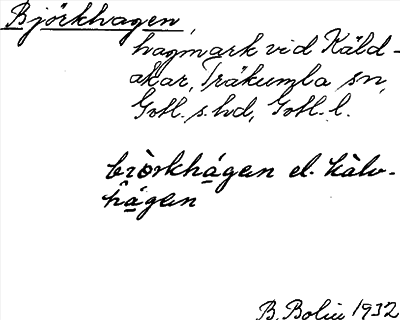 Björkhagen,
hagmark vid Käld-
akar, Träkumla sn,
Gotl. s. hd, Gotl. l.
bròrkhágen el. kàlv-
hágen
B. Bolin 1932